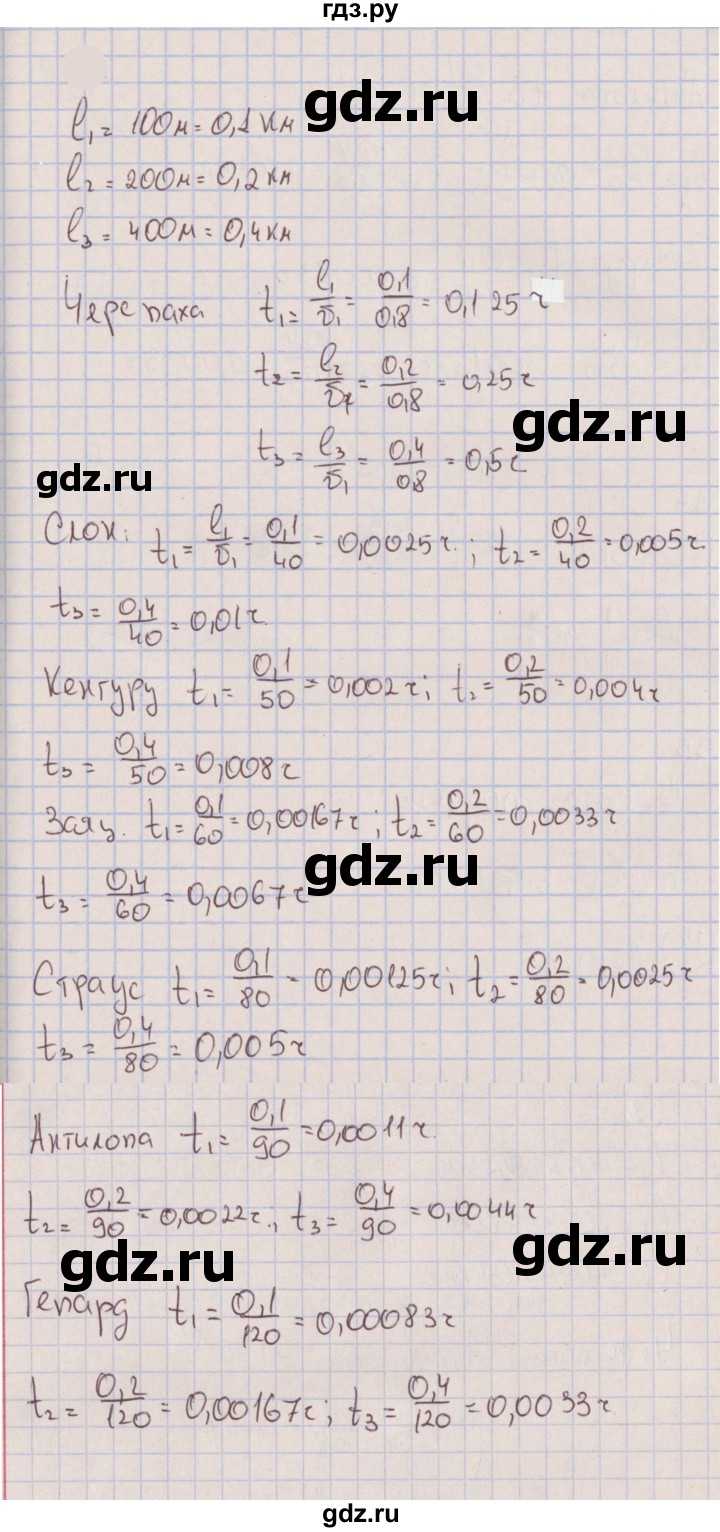 гдз.ру
gdz.ru
l₁ = 100м = 0,1 км
l₂ = 200м = 0,2 км
l₃ = 400м = 0,4 км
Черепаха t₁ = l₁/υ₁ = 0,1/0,8 = 0,125 ч
t₂ = l₂/υ₁ = 0,2/0,8 = 0,25 ч
gdz.ru
t₃ = l₃/υ₁ = 0,4/0,8 = 0,5 ч
gdz.ru
Слон: t₁ = l₁/υ₁ = 0,1/40 = 0,0025 ч.; t₂ = 0,2/40 = 0,005 ч.
t₃ = 0,4/40 = 0,01 ч.
Кенгуру t₁ = 0,1/50 = 0,002 ч; t₂ = 0,2/50 = 0,004 ч
t₃ = 0,4/50 = 0,008 ч
Заяц. t₁ = 0,1/60 = 0,00167 ч; t₂ = 0,2/60 = 0,0033 ч
gdz.ru
t₃ = 0,4/60 = 0,0067 ч
Страус t₁ = 0,1/80 = 0,00125 ч; t₂ = 0,2/80 = 0,0025 ч
t₃ = 0,4/80 = 0,005 ч
Антилопа t₁ = 0,1/90 = 0,0011 ч.
t₂ = 0,2/90 = 0,0022 ч.; t₃ = 0,4/90 = 0,0044 ч
gdz.ru
gdz.ru
Гепард t₁ = 0,1/120 = 0,00083 ч
t₂ = 0,2/120 = 0,00167 ч; t₃ = 0,4/120 = 0,0033 ч
gdz.ru